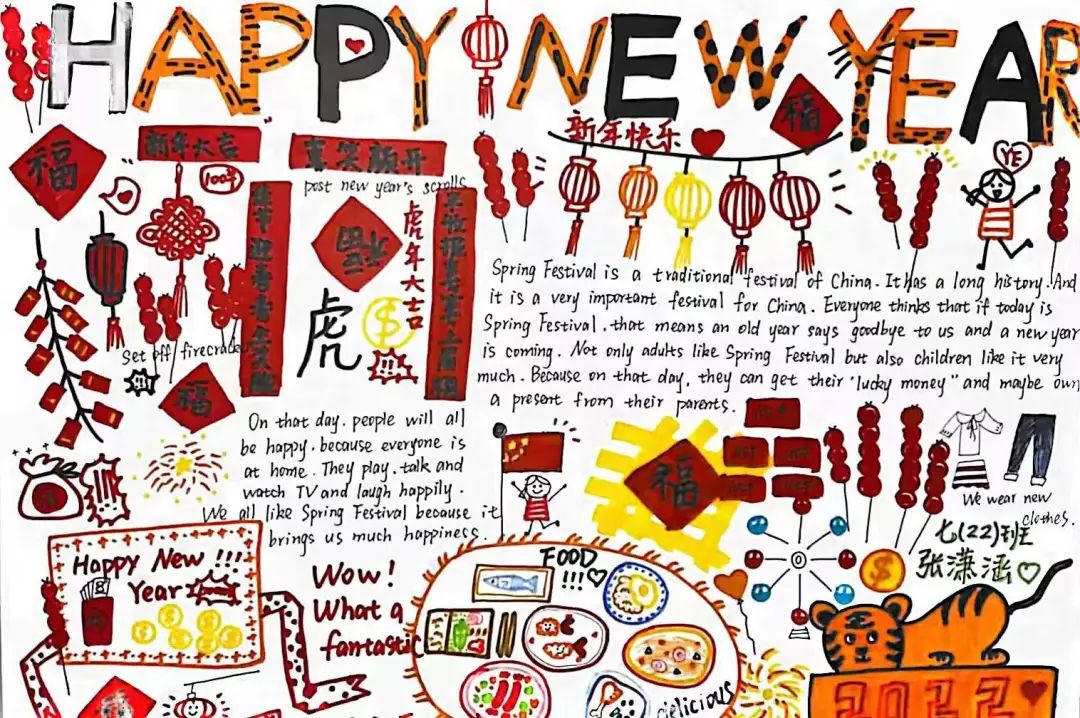 HAPPY NEW YEAR
福
新年大吉
喜笑颜开
新年快乐
福
YE
100年
post new year's scrolls
佳节迎春春生笑脸
福
虎年大吉
丰收报喜喜上眉梢
虎
$
Set off firecracker
福
Spring Festival is a traditional festival of China. It has a long history. And
it is a very important festival for China. Everyone thinks that if today is
Spring Festival, that means an old year says goodbye to us and a new year
is coming. Not only adults like Spring Festival but also children like it very
much. Because on that day, they can get their "lucky money" and maybe own
a present from their parents.
On that day, people will all
be happy, because everyone is
at home. They play, talk and
watch TV and laugh happily.
We all like Spring Festival because it
brings us much happiness.
福
We wear new
clothes.
七(22)班
张潇涵
$
Happy New !!!
Year
Wow!
What a
fantastic
FOOD
!!!
delicious
2022